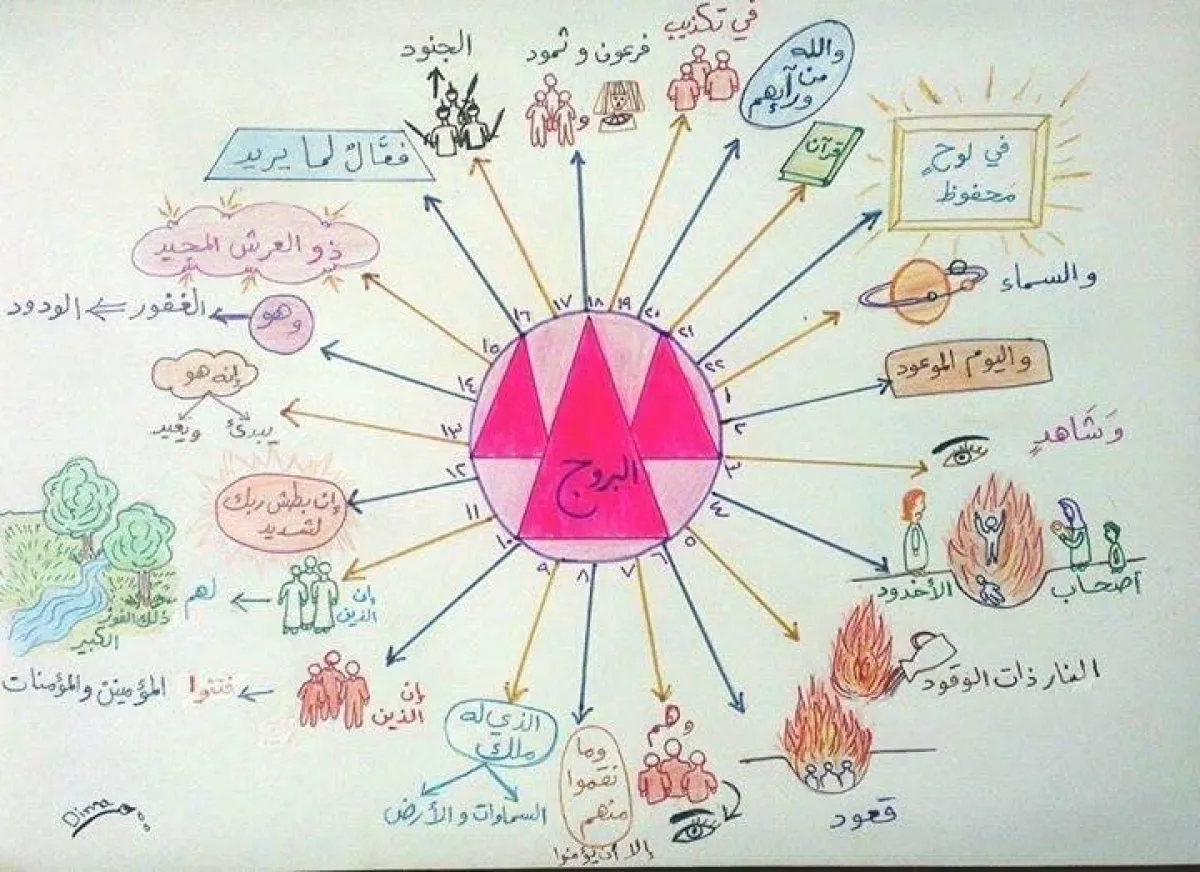 البروج
١
٢
٣
٤
٥
٦
٧
٨
٩
١٠
١١
١٢
١٣
١٤
١٥
١٦
١٧
١٨
١٩
٢٠
٢١
٢٢
والسماء
واليوم الموعود
وَشَاهدٍ
أصحاب الأخدود
النار ذات الوقود
قعود
وهم
وما
نقموا
منهم
إلا أن يؤمنوا
الذي له
ملك
السماوات والأرض
إن
الذين
فتنوا المؤمنين والمؤمنات
إن
الذين
لهم
ذلك الفوز
الكبير
إن بطش ربك
لشديد
إنه هو
يبدئ ويعيد
وهو
الغفور
الودود
ذو العرش المجيد
فعَّالٌ لما يريد
الجنود
فرعون و ثمود
و
في تكذيب
والله
من
ورآئهم
قرآن
في لوحٍ
مَحفوظ
Dima